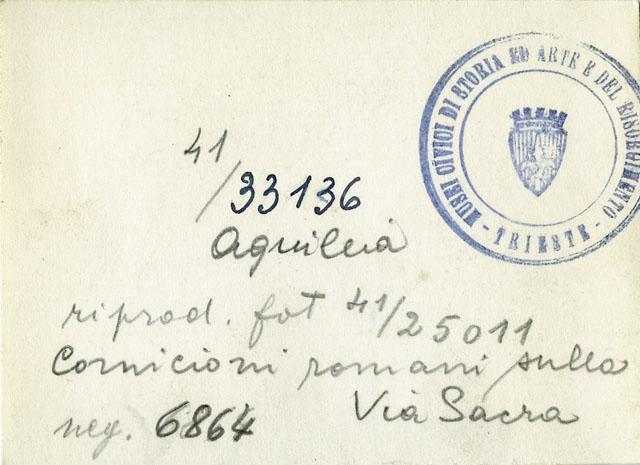 MUSEI CIVICI DI STORIA ED ARTE E DEL RISORGIMENTO
- TRIESTE -
41/33136
Aquileia
riprod. fot 41/25011
Cornicioni romani sulla
Via Sacra
neg. 6864